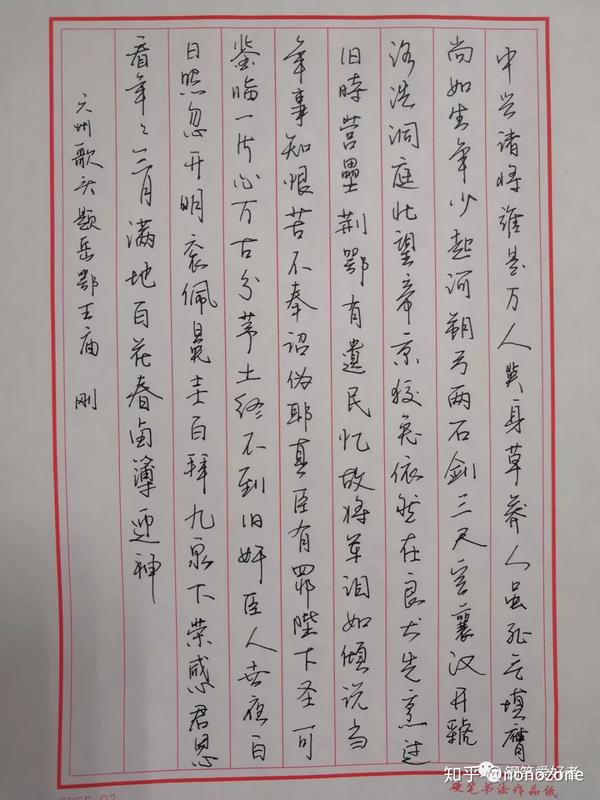 中兴诸将谁是万人英身草莽人虽死气填膺
尚如生年少起河朔弓两石剑三尺定襄汉开虢
洛洗洞庭北望帝京狡兔依然在良犬先烹过
旧时营垒荆鄂有遗民忆故将军泪如倾说当
年事知恨苦不奉诏伪耶真臣有罪陛下圣可
鉴临一片心万古分茅土终不到旧奸臣人世夜白
日照忽开明衮佩冕圭百拜九泉下荣感君恩
看年々三月满地百花春卤簿迎神
六州歌头题岳鄂王庙 刚
钢笔爱好者
知乎 @nonozone
硬笔书法作品纸